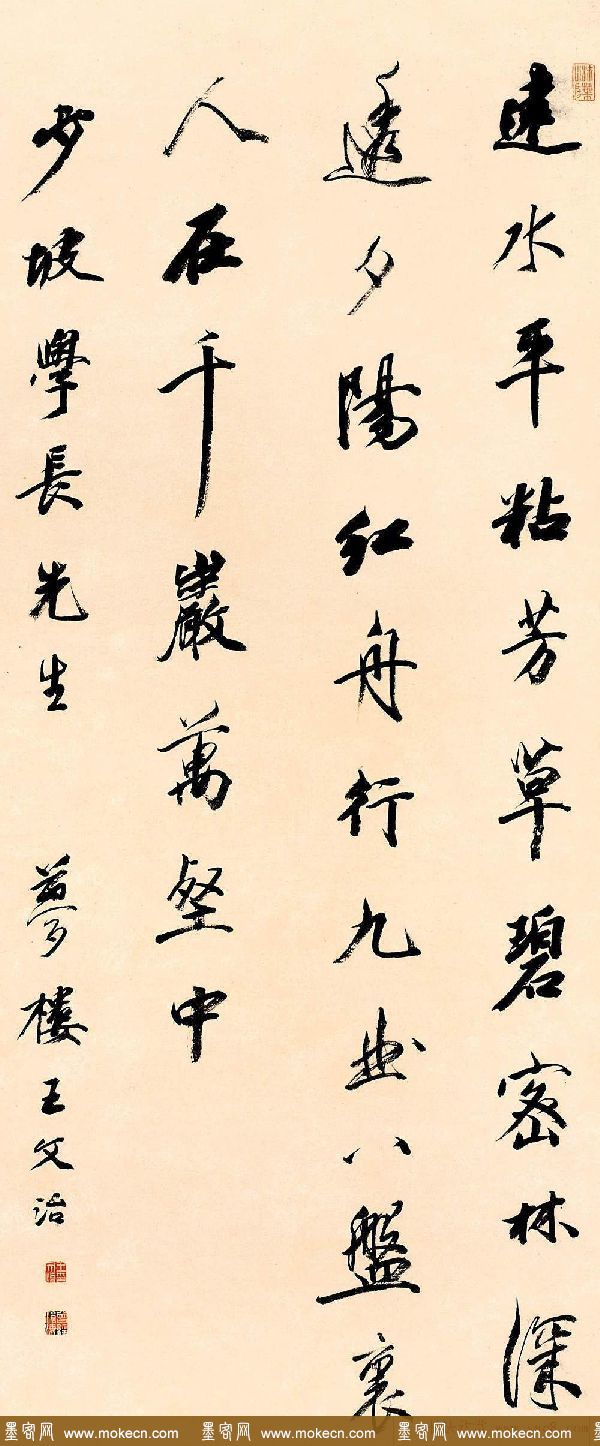 遠水平粘芳草碧密林深
透夕陽紅舟行九曲八盤裏
人在千巖萬壑中
少坡學長先生 夢樓王文治
墨客网 www.mokecn.com 墨客网 www.mokecn.com 墨客网 www.mokecn.com